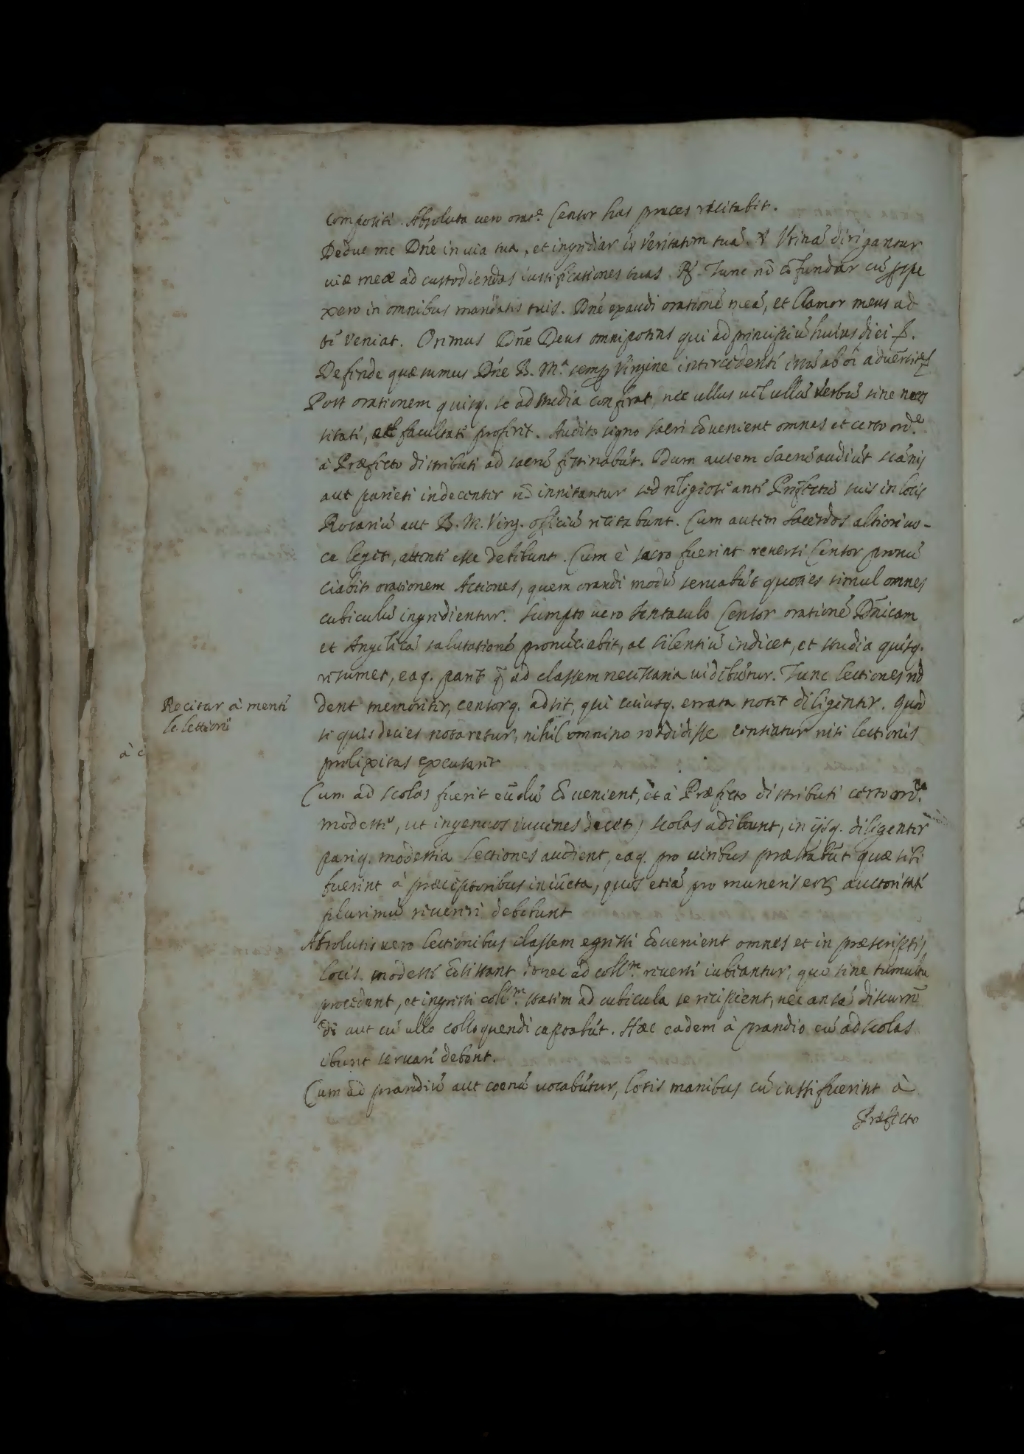 compositi. Absoluta vero omn.e Censor has præces recitabit.
Deduc me Dñe in via tua, et ingrediar in Veritatem tuã. ℣ Utinã dirigantur
viæ meæ ad custodiendas iustificationes tuas. ℟. Tunc nõ cõfundar cũ pspe
xero in omnibus mandatis tuis. Dñe exaudi orationẽ meã, et Clamor meus ad
te veniat. Oremus Dñe Deus omnipotens qui ad principiũ huius diei
Defende quæsumus Dñe B. M.a semp Virgine intercedente ab oĩ
Post orationem quisq. se ad studia conferat, nec ullus vel ullũ verbũ sine neces
sitate, facultate proferet. Audito signo sacri cõvenient omnes et certo ord.e
a Præfecto distributi ad sacrũ festinabũt. Dum autem Sacrũ audiũt scãnis
aut parieti indecenter nõ innitantur sed religiose ante Præfectũ suis in locis
Rosariũ aut B. M. Virg. officiũ recitabunt. Cum autem Sacerdos altiori vo-
ce leget, attenti esse debebunt. Cum è sacro fuerint reversi Censor pronũ
ciabit orationem Actiones, quem orandi modũ servabũt quoties simul omnes
cubiculũ ingredientur. Sumpto vero Ientaculo Censor orationẽ Dñicam
et Angelicã salutationẽ pronũciabit, ac silentiũ indicet, et studia quisq.
resumet, eaq. ad classem necessaria videbũtur. Tunc lectiones red
dent memoriter, censorq. adsit, qui cuiusq. errata notet diligenter. Quod
si quis decies notaretur, nihil omnino reddidisse censeatur nisi lectionis
prolixitas excusaret
Recitar à mente
le lettioni
Cum ad scolas fuerit eũdũ cõvenient, et à Præfecto distributi certo ord.e
modeste, ut ingenuos iuvenes decet, scolas adibunt, in ijsq. diligenter
pariq. modestia lectiones audient, eaq. pro viribus præstabũt quæ sibi
fuerint à præceptoribus iniũcta, quos etiã pro muneris auctoritate
plurimũ revereri debebunt
Absolutis vero lectionibus classem egressi cõvenient omnes et in præscriptis
locis modeste cõsistant donec ad coll.m reverti iubeantur, quo sine tumultu
procedent, et ingressi coll.m statim ad cubicula se recipient, nec ansã discurrẽ
di aut cũ ullo colloquendi captabũt. Hæc eadem à prandio cũ ad scolas
ibunt servari debent.
Cum ad prandiũ aut coenã vocabũtur, lotis manibus cũ iussi fuerint à
Præfecto